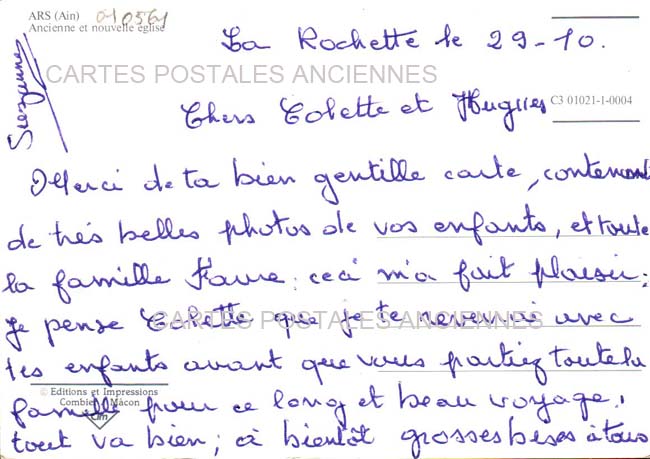 ARS (Ain)
Ancienne et nouvelle église
010561
La Rochette le 29-10.
CARTES POSTALES ANCIENNES
Suzanne
Chers Colette et Hugues
C3 01021-1-0004
Merci de ta bien gentille carte, contenant
de très belles photos de vos enfants, et toute
la famille Favre : ceci m'a fait plaisir :
je pense Colette que je te reverrai avec
CARTES POSTALES ANCIENNES
tes enfants avant que vous partiez toute la
© Editions et Impressions
Combier Mâcon
cim
famille pour ce long et beau voyage,
tout va bien ; à bientôt grosses bises à tous